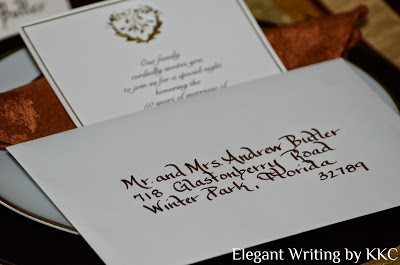 Our family
cordially invites you
to join us for a special night
honoring the
years of marriage of
Mr. and Mrs. Andrew Butler
718 Glastonberry Road
Winter Park, Florida
32789
Elegant Writing by KKC